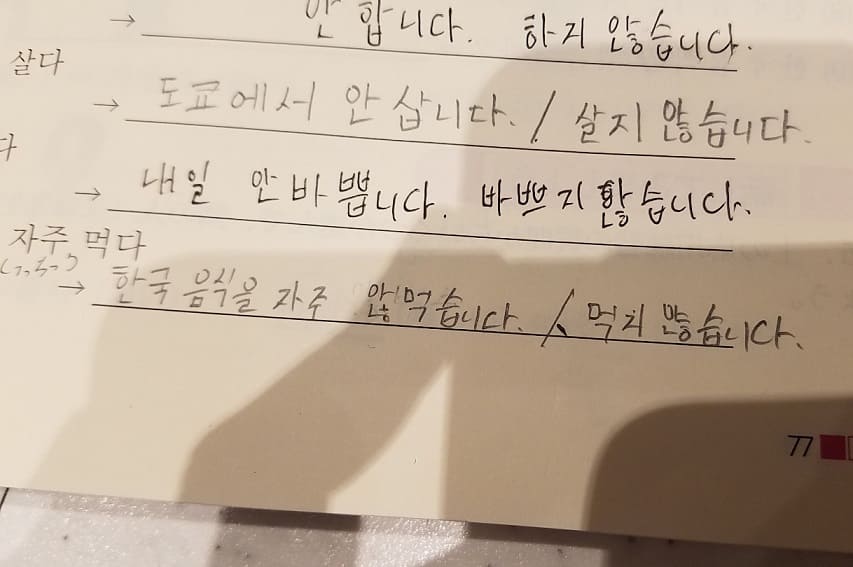 → 안 합니다. 하지 않습니다.
살다
→ 도쿄에서 안 삽니다. / 살지 않습니다.
다
→ 내일 안 바쁩니다. 바쁘지 않습니다.
자주, 먹다
→ 한국 음식을 자주 않먹습니다. / 먹지 않습니다.
77